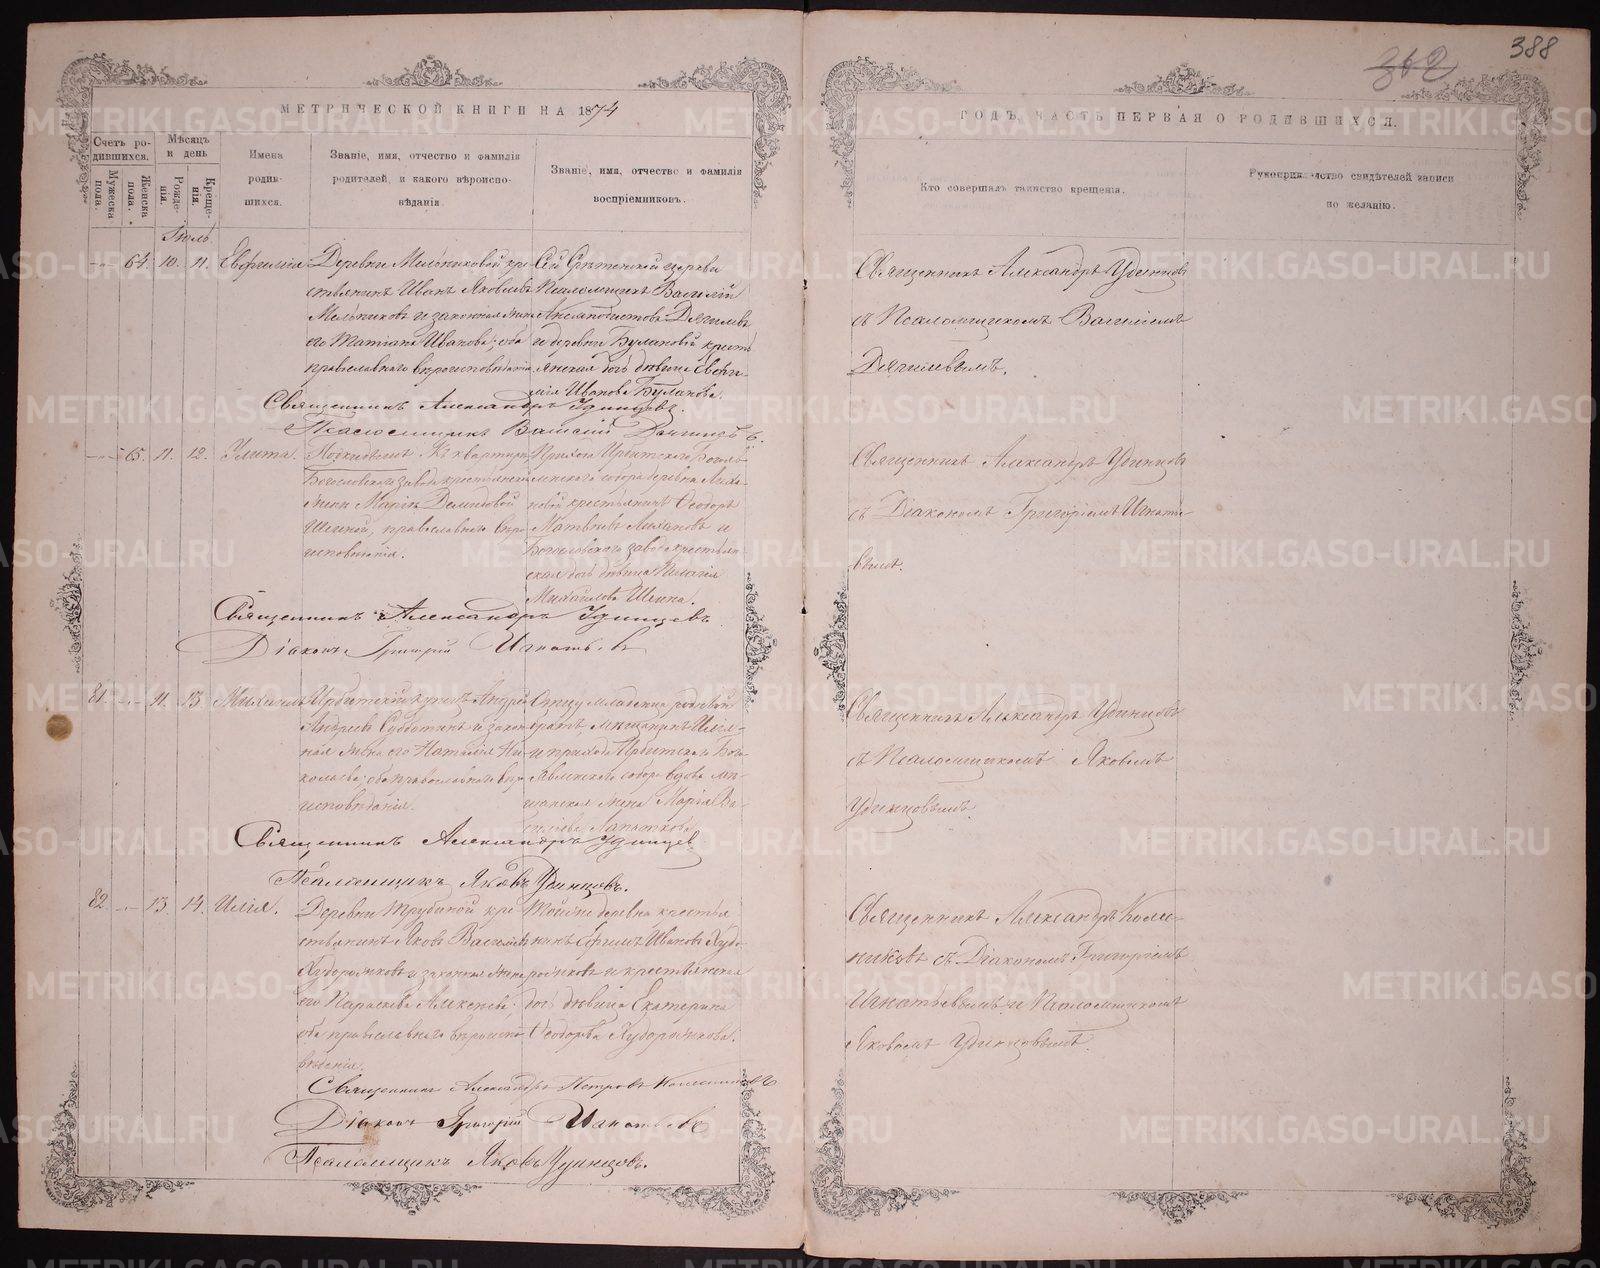 388
362
МЕТРИЧЕСКОЙ КНИГИ НА 1874
ГОДЪ, ЧАСТЬ ПЕРВАЯ О РОДИВШИХСЯ.
Счетъ ро-
дившихся.
Мужеска
пола.
Женска
пола.
Мѣсяцъ
и день
Рожде-
нія.
Креще-
нія.
Имена
родив-
шихся.
Званіе, имя, отчество и фамилія
родителей, и какого вѣроиспо-
вѣданія.
Званіе, имя, отчество и фамилія
воспріемниковъ.
Кто совершалъ таинство крещенія.
Рукоприкладство свидѣтелей записи
по желанію.
Іюль
64. 10. 11. Евфимія
Деревни Мельниковой кре-
стьянинъ Иванъ Яковлевъ
Мельниковъ и законная жена
его Татіана Иванова; оба
православнаго вѣроисповѣданія.
Сей Срѣтенской церкви
Псаломщикъ Василій
Дягилевъ
и деревни Булановой кресть-
янская дочь дѣвица Евфи-
мія Иванова Буланова.
Священникъ Александръ Удинцовъ
съ Псаломщикомъ Василіемъ
Дягилевымъ.
Священникъ Александръ Удинцевъ.
Псаломщикъ Василій Дягилевъ.
65. 11. 12. Улита.
къ квартирѣ
Богословскаго завода крестьянской
Маріи Демидовой
православнаго вѣро-
исповѣданія.
Прихода Ирбитскаго Богояв-
ленскаго собора деревни Лиха-
новой крестьянинъ Ѳеодоръ
Матвѣевъ Лихановъ и
Богословскаго завода крестьян-
ская дочь дѣвица Пелагія
Михайлова
Священникъ Александръ Удинцовъ
съ Діакономъ Григоріемъ Игнать-
евымъ.
Священникъ Александръ Удинцевъ
Діаконъ Григорій Игнатьевъ
81. 11. 13. Михаилъ
Ирбитскій купецъ Андрей
Андреевъ Субботинъ и закон-
ная жена его Наталія Ни-
колаева; оба православнаго вѣро-
исповѣданія.
Отцу младенца родной
братъ, мѣщанинъ Илія
и прихода Ирбитскаго Бого-
явленскаго собора вдова мѣ-
щанская жена Марія Ва-
сильева Лапаткова
Священникъ Александръ Удинцовъ
съ Псаломщикомъ Яковомъ
Удинцовымъ.
Священникъ Александръ Удинцев
Псаломщикъ Яковъ Удинцовъ.
82 13 14. Илія.
Деревни Трубиной кре-
стьянинъ Яковъ Васильевъ
Худорожковъ и законная жена
его Параскева Алексѣева;
оба православнаго вѣроиспо-
вѣданія.
Той же деревни крестья-
нинъ Ефимъ Ивановъ Худо-
рожковъ и крестьянская
дочь дѣвица Екатерина
Ѳеодорова Худорожкова.
Священникъ Александръ Коли-
никовъ съ Діакономъ Григоріемъ
Игнатьевымъ и Псаломщикомъ
Яковомъ Удинцовымъ.
Священникъ Александръ Петровъ
Діаконъ Григорій Игнатьевъ
Псаломщикъ Яковъ Удинцовъ.
METRIKI.GASO-URAL.RU